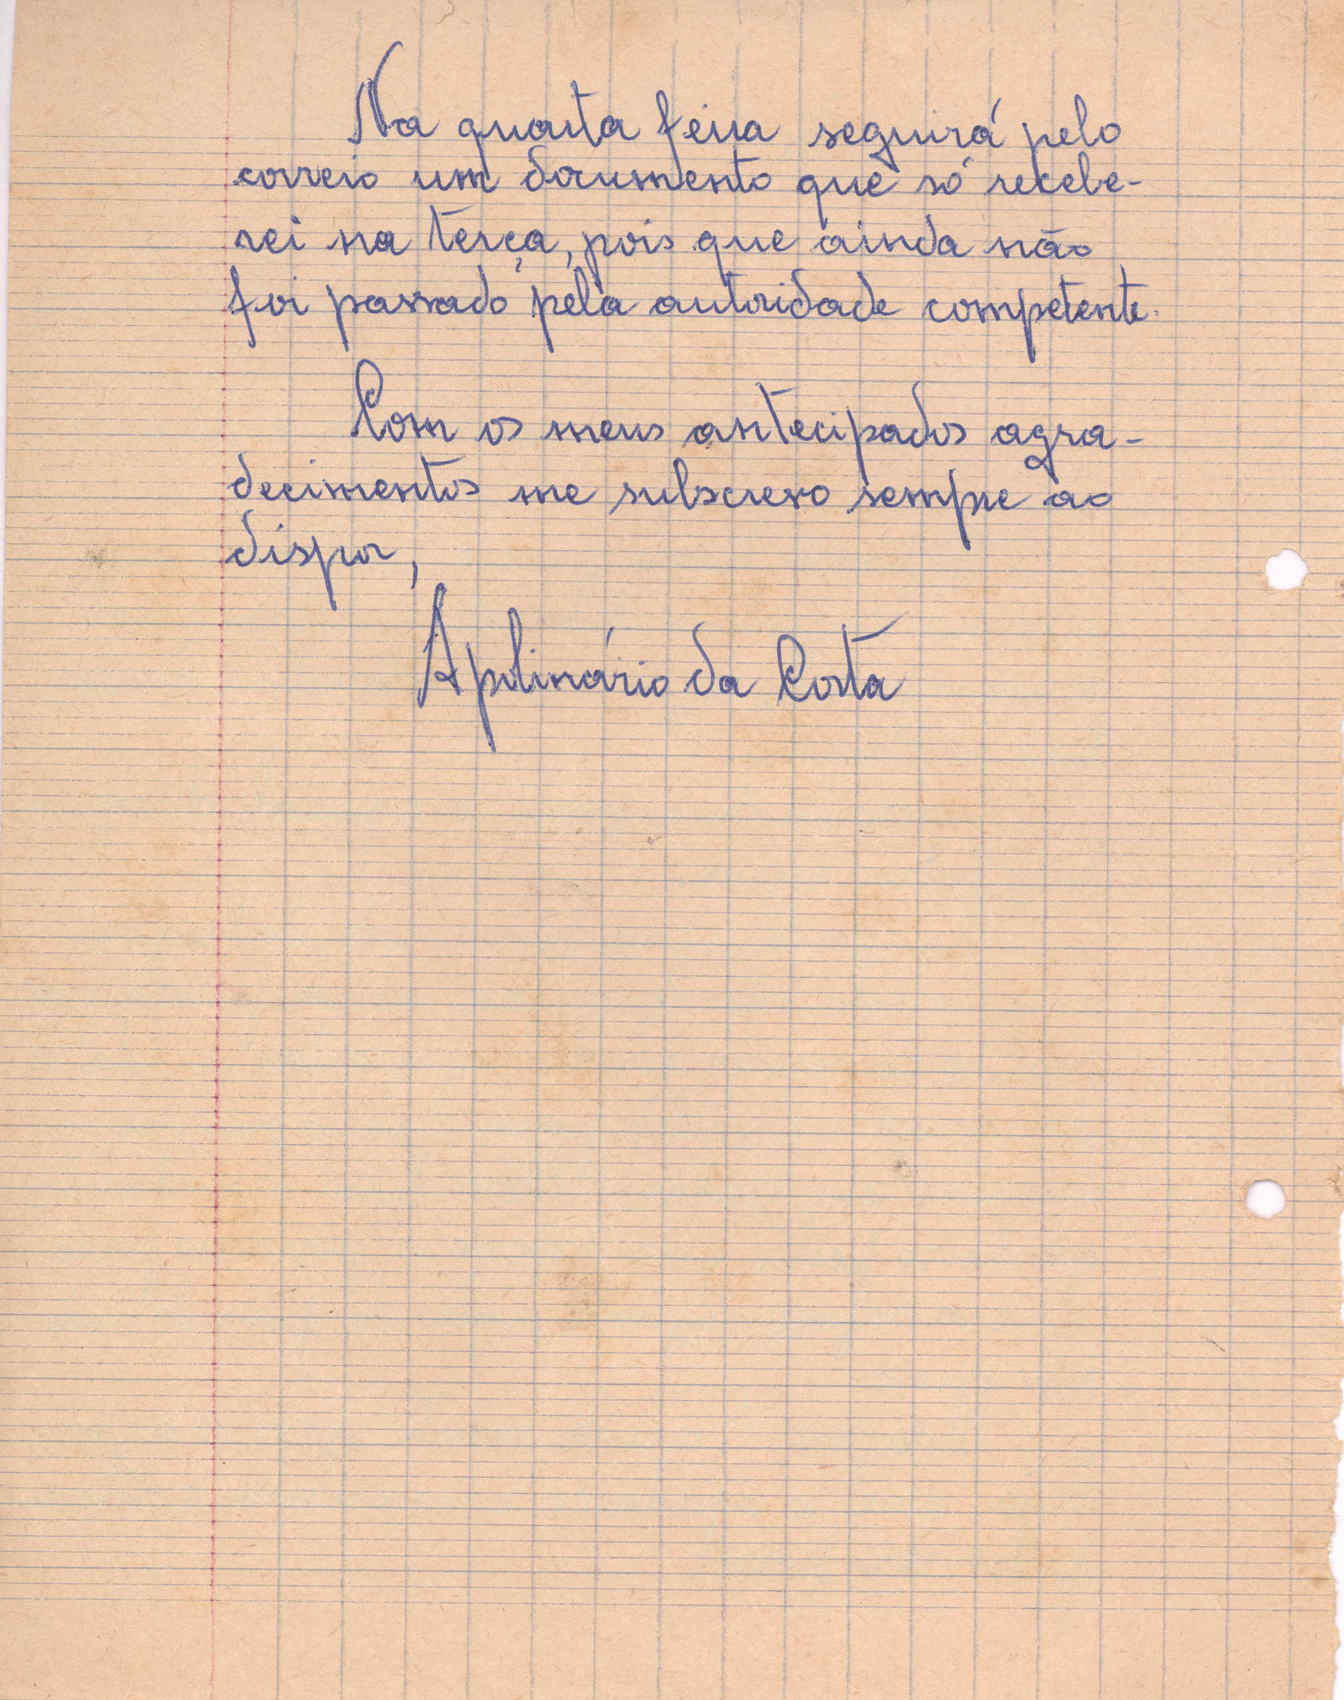 Na quarta feira seguirá pelo
correio um documento que só recebe-
rei na terça, pois que ainda não
foi passado pela autoridade competente.
Com os meus antecipados agra-
decimentos me subscrevo sempre ao
dispor,
Apolinário da Costa